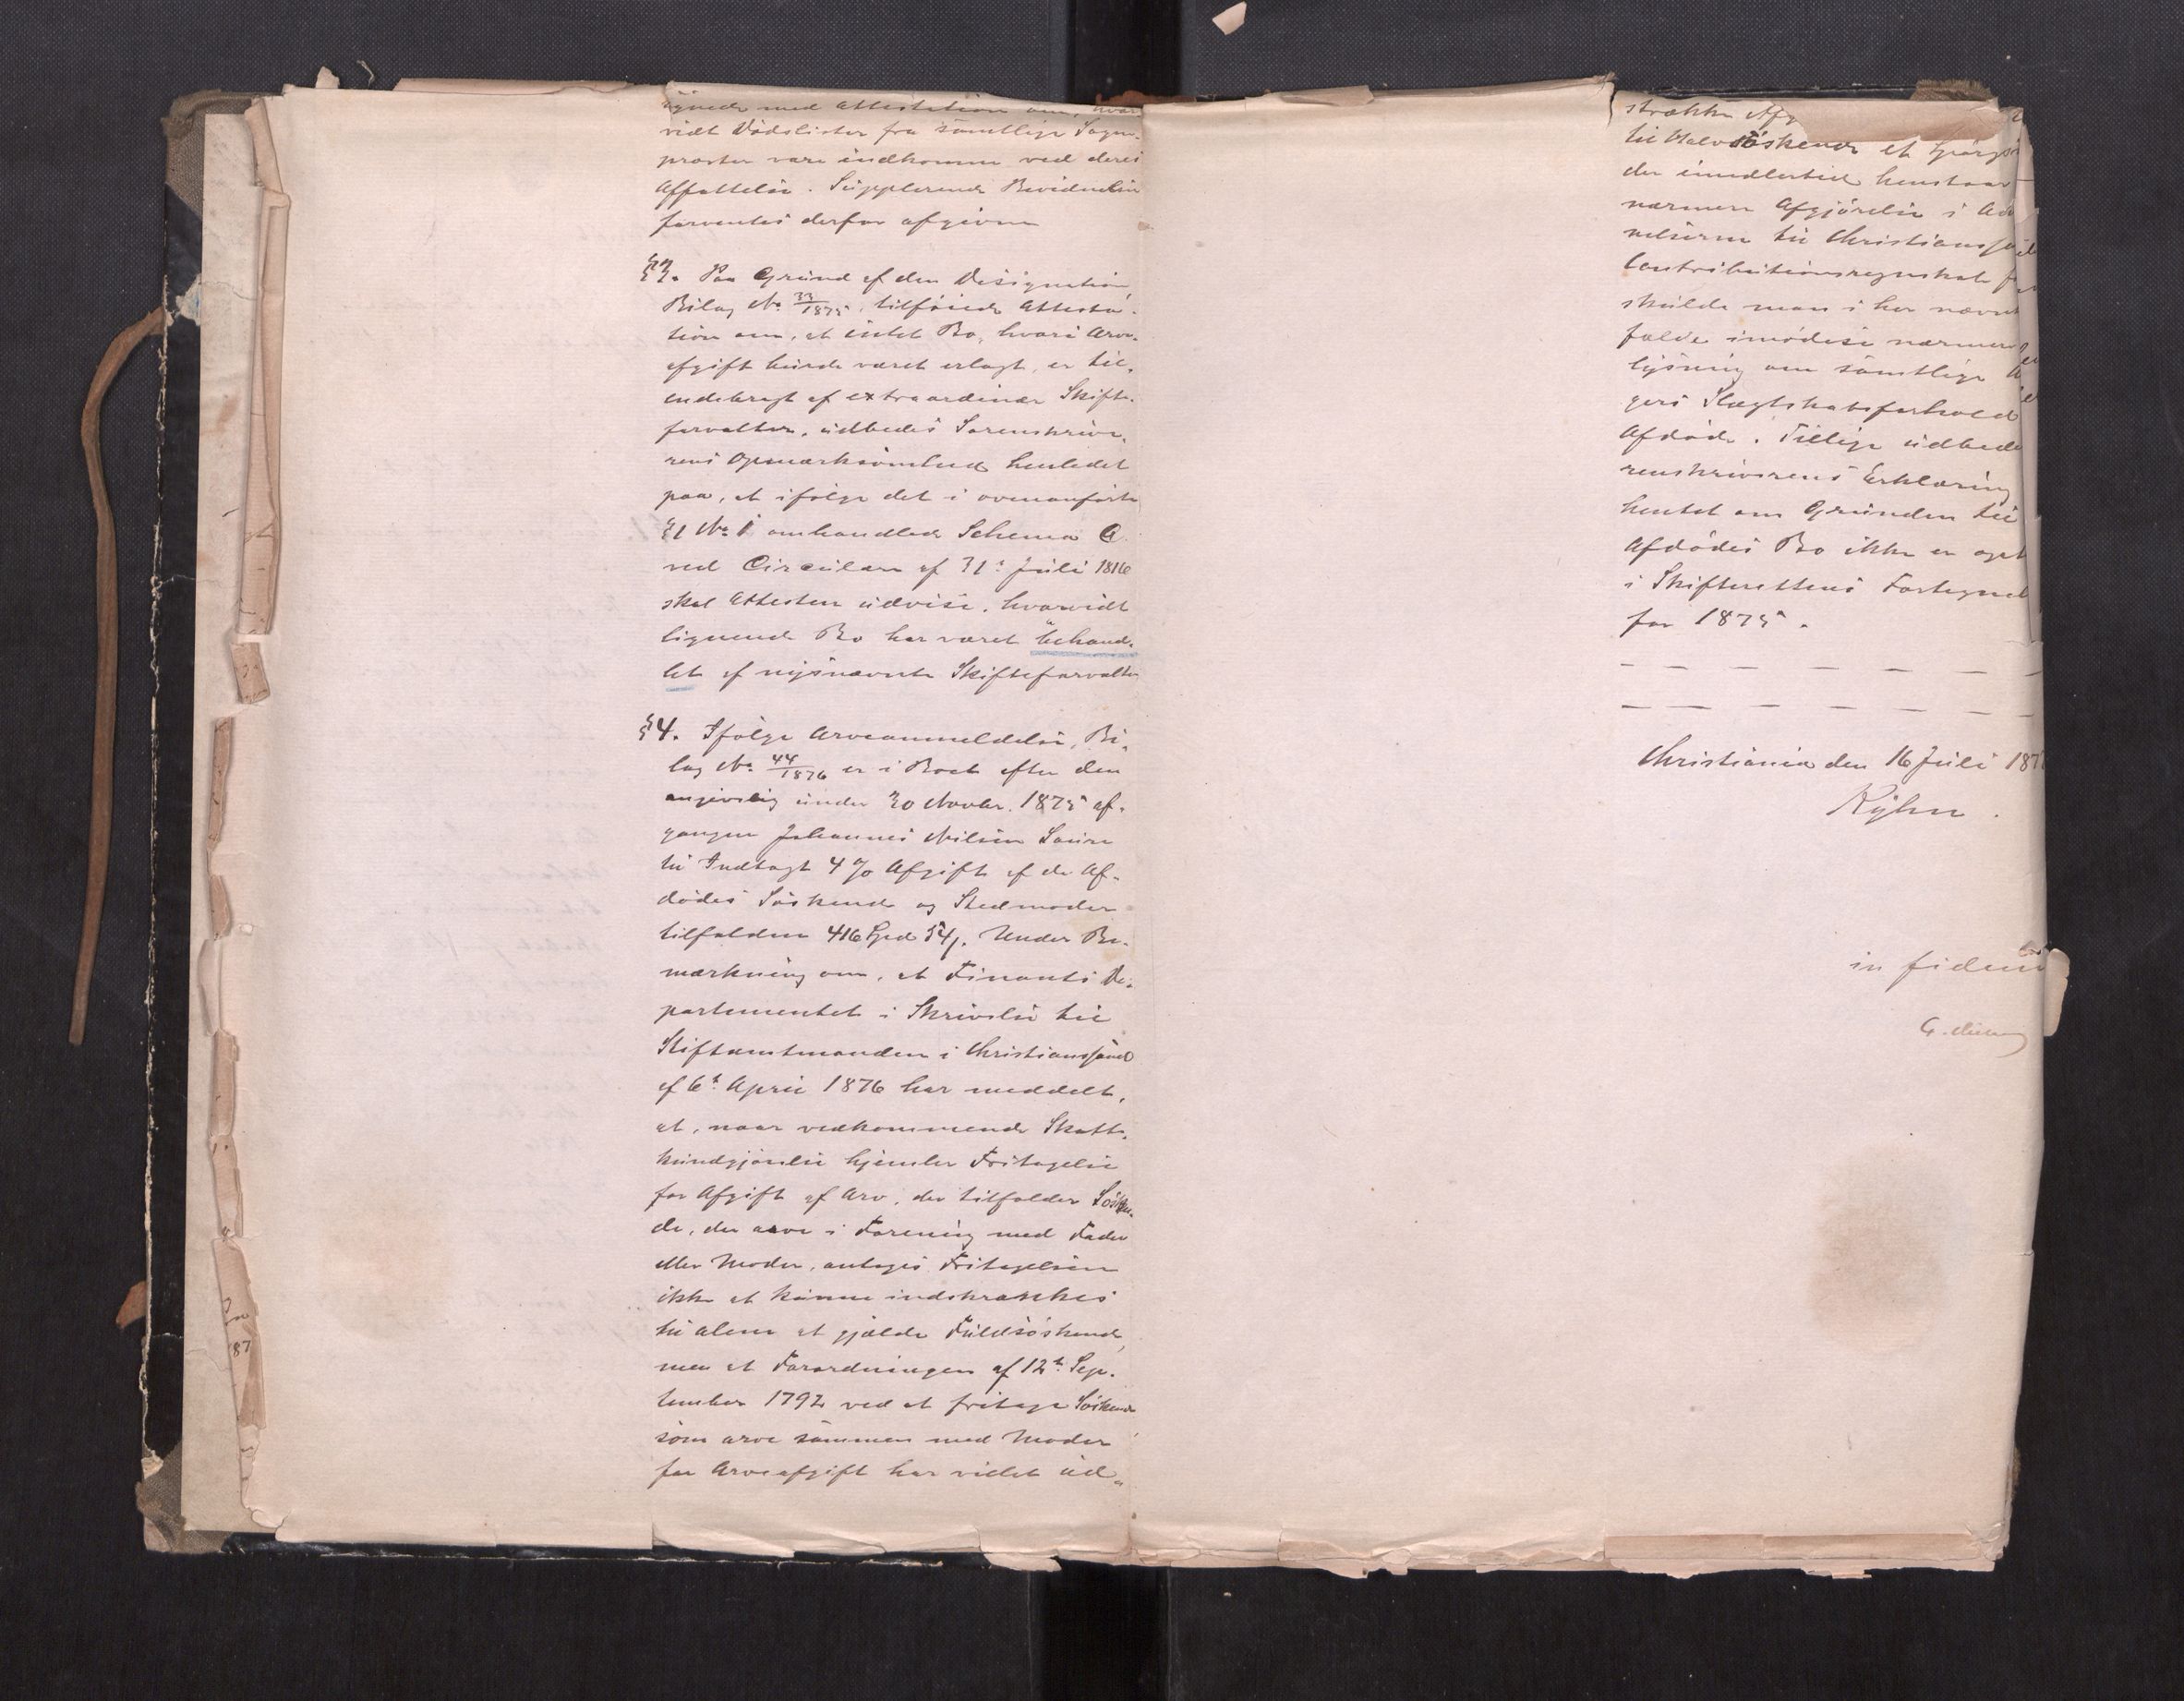 ugnede med Attestation om, hvor-
vidt Dödslister fra samtlige Sogne-
præster vare indkomne ved deres
Affattelse. Supplerende Bevidnelse
forventes derfor afgiven
§3. Paa Grund af den Designation
Bilag No 33/1875, tilföiede Attesta-
tion om, at intet Bo, hvori Arve-
afgift burde været erlagt, er til-
endebragt af extraordinær Skifte-
forvalter, udbedes Sorenskrive-
rens Opmærksomhed henledet
paa, at ifölge det i ovenanförte
§1 No 1 omhandlede Schema
ved Circulære af 31te Juli 1816
skal Attesten udvise, hvorvidt
lignende Bo har været behand-
let af nysnævnte Skifteforvalter
§4. Ifölge Arveanmeldelse, Bi-
lag No 44/1876 er i Boet efter den
angivelig under 30 Novbr. 1875 af-
gangne Johannes Nilsen
til Indtægt 4 % Afgift af de Af-
dödes Söskende og Stedmoder
tilfaldne 416 Spd 54 ſ. Under Be-
mærkning om, at Finants De-
partementet i Skrivelse til
Stiftamtmanden i Christianssand
af 6te April 1876 har meddelt,
at, naar vedkommende Skatte-
kundgjörelse hjemler Fritagelse
for Afgift af Arv, der tilfalder Sösken-
de, der arve i Forening med Fader
eller Moder, antages Fritagelsen
ikke at kunne indskrænkes
til alene at gjælde Fuldsöskende,
men at Forordningen af 12te Sep-
tember 1792 ved at fritage Söskende
som arve sammen med Moder
for Arveafgift har villet ud-
strække Afg
til Halvsöskende et Spörgs
der imidlertid henstaar
nærmere Afgjörelse i
nelserne til Christianssa
Contributionsregnskab f
skulde man i her nævnt
fald imödese nærmere
lysning om samtlige
gers Slægtskabsforhold
Afdöde. Tillige udbede
renskriverens Erklæring
hentet om Grunden til
Afdödes Bo ikke er opt
i Skifterettens Fortegnel
for 1875.
Christiania den 16 Juli 187
Kyhn.
in fidem